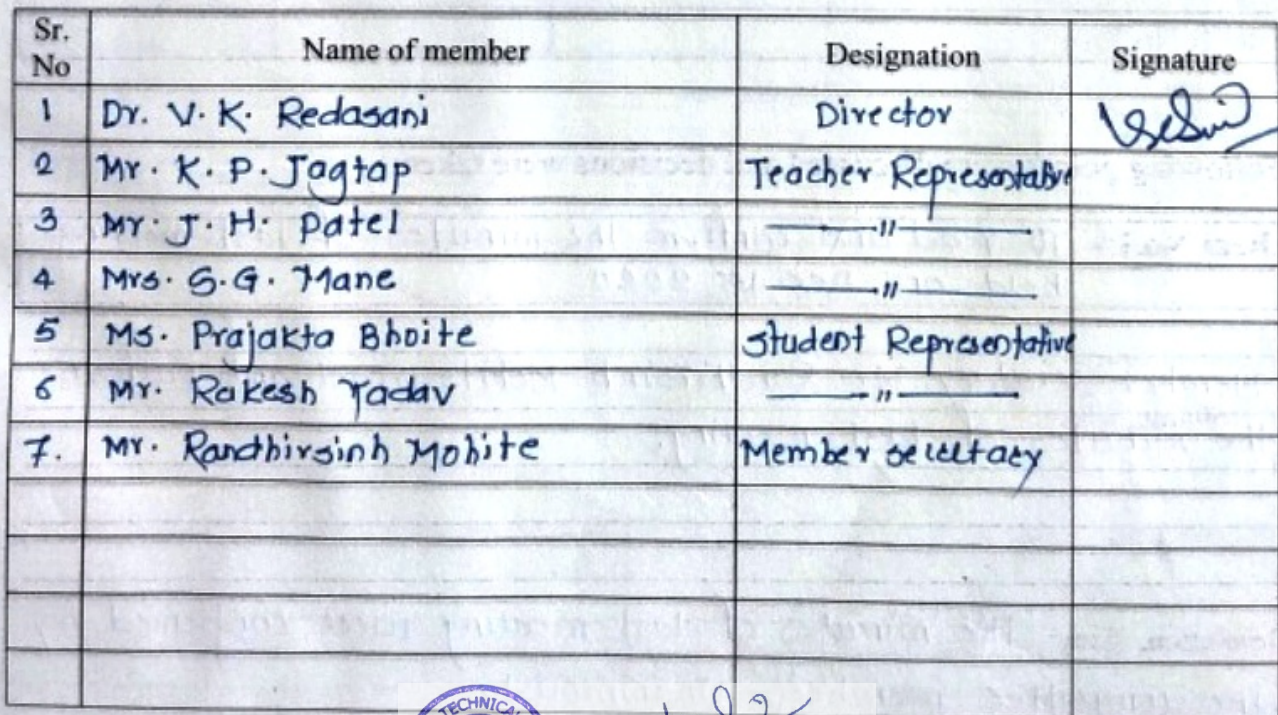 Sr. No Name of member Designation Signature
1 Dr. V. K. Redasani Director
2 Mr. K. P. Jagtap Teacher Representative
3 Mr J. H. Patel —〃—
4 Mrs. S.G. Mane —〃—
5 Ms. Prajakta Bhoite Student Representative
6 Mr. Rakesh Yadav —〃—
7. Mr. Randhirsinh Mohite Member
TECHNICAL